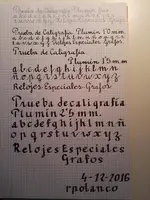 Prueba de Caligrafía Plumín 1'0 mm
a b c d e f g h i j k l m n ñ o p q r s
t u v w x y z. Relojes Especiales Grafos
Prueba de Caligrafía
Plumín 1'5 mm
a b c d e f g h i j k l m n
ñ o p q r s t u v w x y z
Relojes Especiales Grafos
Prueba de caligrafía
Plumín 2'5 mm.
a b c d e f g h i j k l m n ñ
o p q r s t u v w x y z
Relojes Especiales
Grafos
4-12-2016
rpolanco